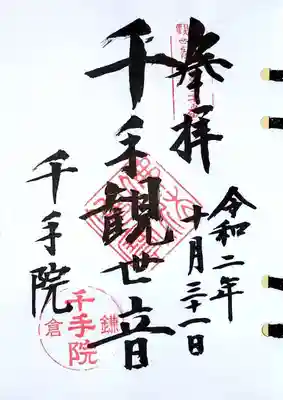 奉拝
令和二年
十月三十一日
千手観世音
千手院
鎌倉
千手院